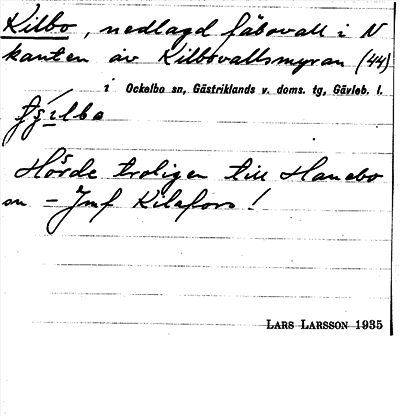 Kilbo, nedlagd fäbovall i N
kanten av Kilbovallsmyran (44)
i Ockelbo sn, Gästriklands v. doms. tg, Gävleb. l.
Hörde troligen till Hanebo
sn – Jmf Kilafors!
LARS LARSSON 1935